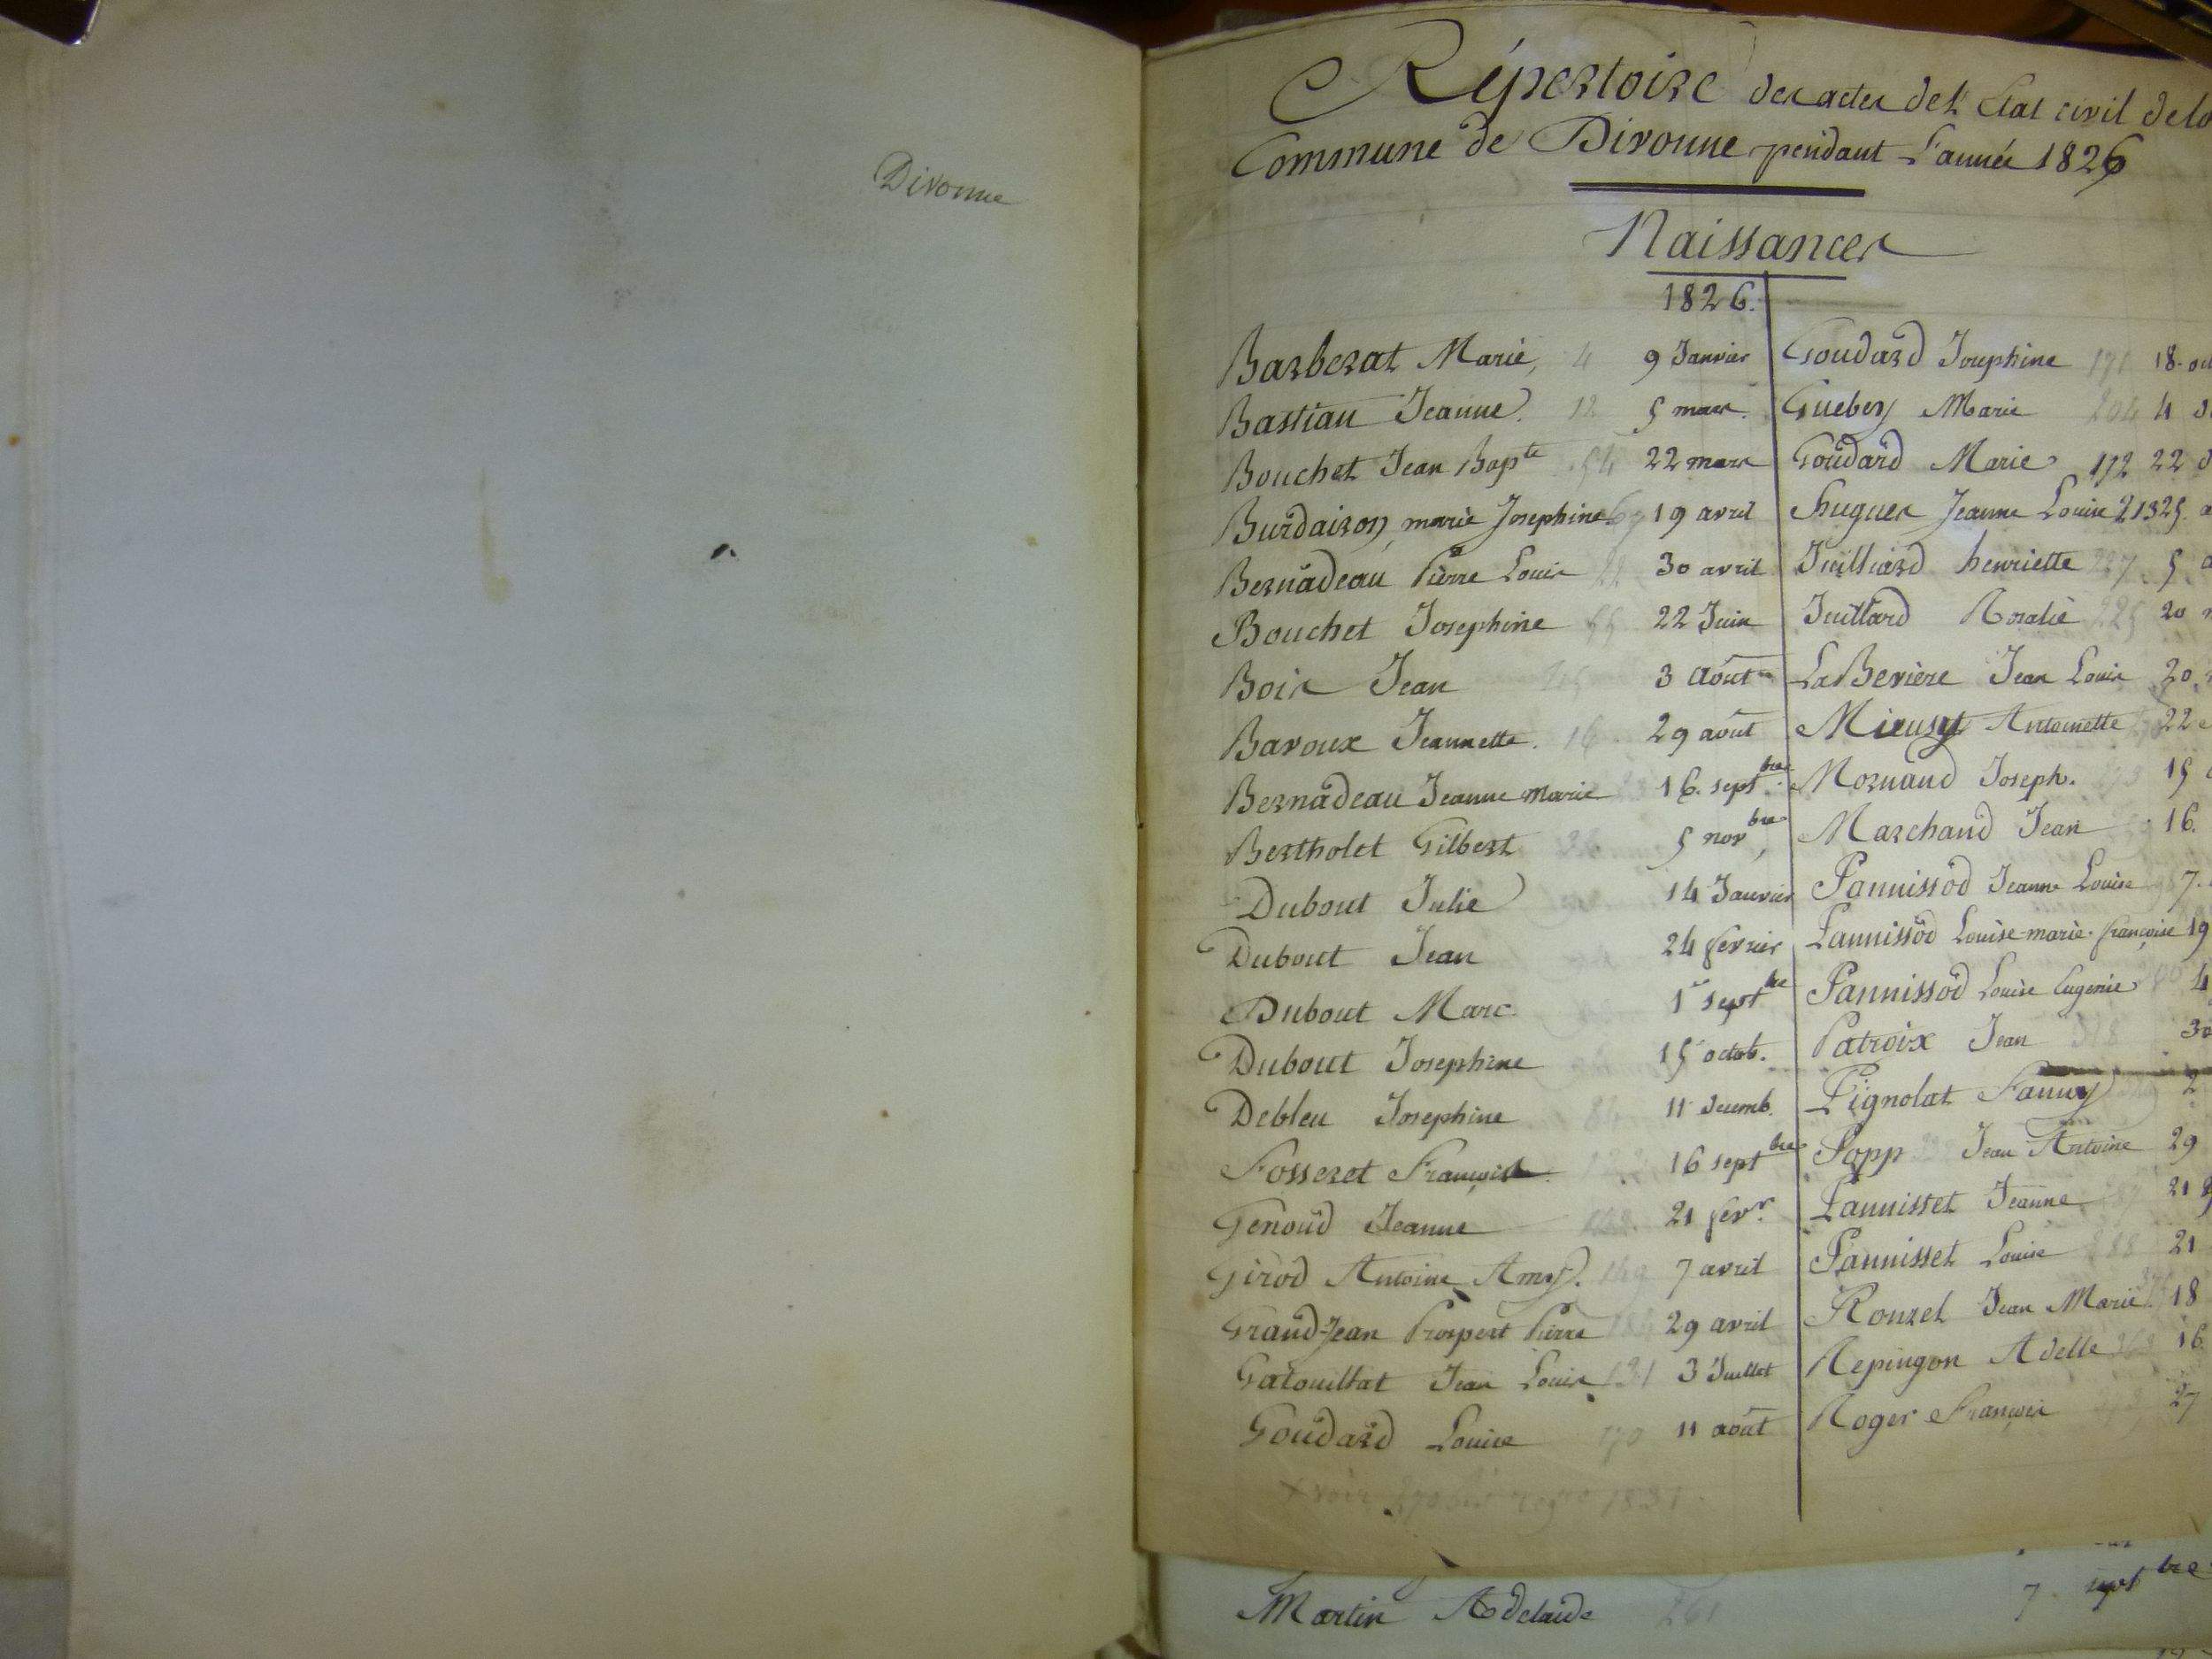 Divonne
Répertoire des actes de l'Etat civil de la
Commune de Divonne pendant L'année 1826
Naissances
1826.
Barberat Marie, 4 9 Janvier
Bastian Jeanne. 12 5 mars.
Bouchet Jean Bapte 54 22 mars
Burdairon, marie Josephine 19 avril
Bernadeau Pierre Louis 22 30 avril
Bouchet Josephine 55 22 Juin
Bois Jean 3 Août
Baroux Jeannette. 16 29 août
Bernadeau Jeanne marie 16. septbre
Bertholet Gilbert 26 5 novbre,
Dubout Julie 14 Janvier
Dubout Jean 24 fevrier
Dubout Marc 1er septbre
Dubout Josephine 15 octob.
Debleu Josephine 84 11 decemb.
Fosseret François 16 septbre
Genoud Jeanne 21 fevr.
Girod Antoine Amy. 149 7 avril
Grand-Jean Prospert Pierre 29 avril
Gatouillat Jean Louis 131 3 Juillet
Goudard Louise 170 11 août
Goudard Josephine 171 18. oc
Guebey Marie 204 4 d
Goudard Marie 172 22 d
Hugues Jeanne Louise 213 25. a
Juilliard henriette 227 5 a
Juillard Rosalie 225 20
LaBeviere Jean Louis 20
Mieusset Antoinette 22
Mornaud Joseph. 273 15
Marchand Jean 16.
Pannissod Jeanne Louise 7.
Pannissod Louise-marie-françoise 19
Pannissod Louise Eugenie 4
Patroix Jean 318 30
Pignolat Fanny 2
Popp Jean Antoine 29
Pannisset Jeanne 21
Pannisset Louise 288 21
Rouzet Jean Marie 18
Repingon Adelle 363 16
Roger François 27
voir 1831
Martin Adelaide 261 7 septbre